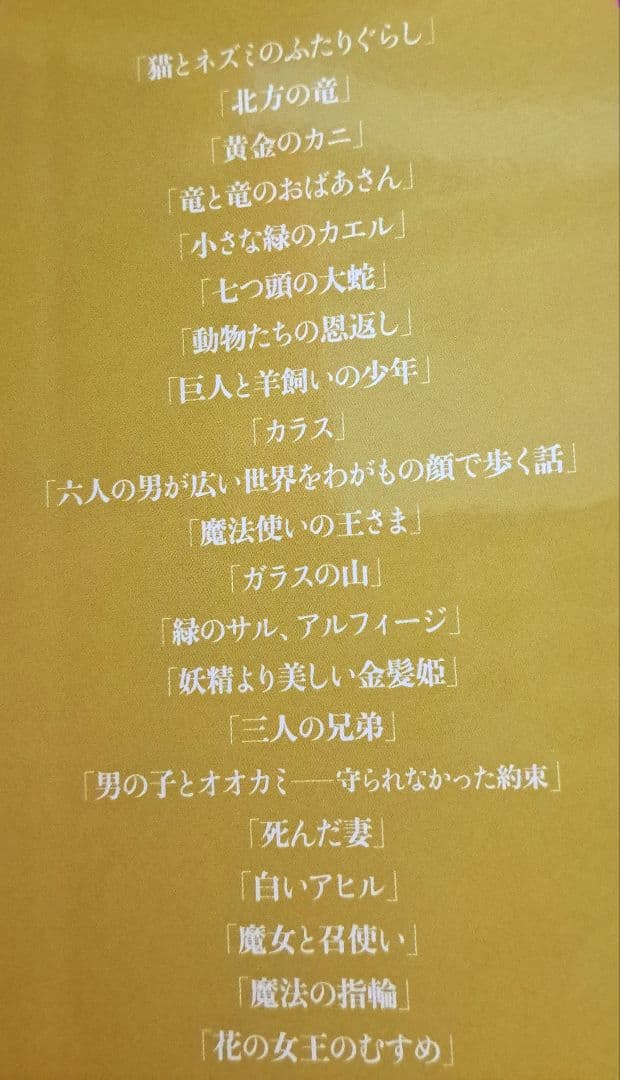 「猫とネズミのふたりぐらし」
「北方の竜」
「黄金のカニ」
「竜と竜のおばあさん」
「小さな緑のカエル」
「七つ頭の大蛇」
「動物たちの恩返し」
「巨人と羊飼いの少年」
「カラス」
「六人の男が広い世界をわがもの顔で歩く話」
「魔法使いの王さま」
「ガラスの山」
「緑のサル、アルフィージ」
「妖精より美しい金髪姫」
「三人の兄弟」
「男の子とオオカミ──守られなかった約束」
「死んだ妻」
「白いアヒル」
「魔女と召使い」
「魔法の指輪」
「花の女王のむすめ」